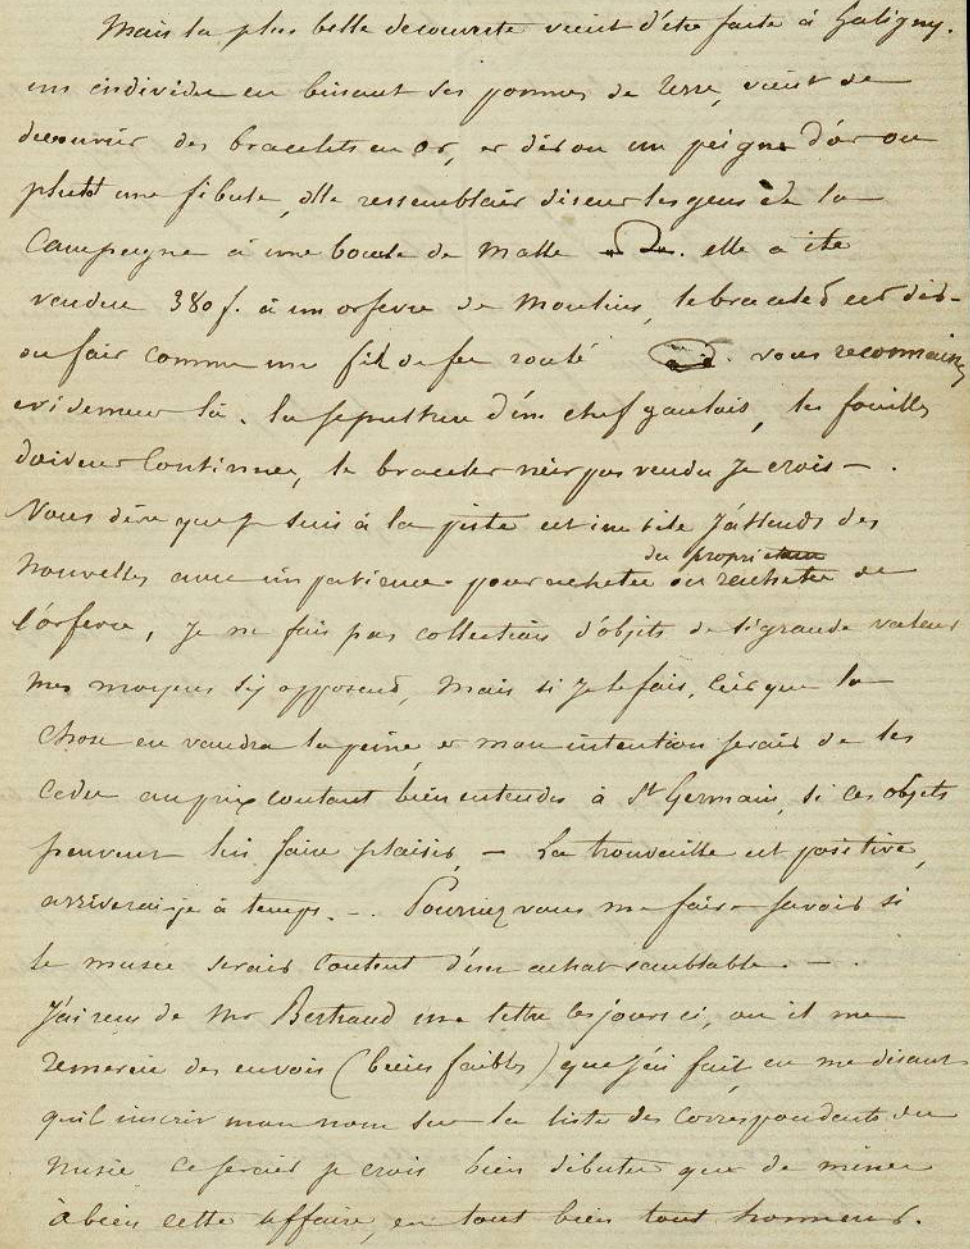 Mais la plus belle decouverte vient d'être faite à Gatigny.
un individu en binant ses pommes de terre, vient de
decouvrir des bracelets en or, et dit on un peigne d'or ou
plutôt une fibule, elle ressemblait disent les gens de la
Campagne à une boucle de malle . elle a été
vendue 380 f. à un orfevre de Moulins, le bracelet est dit-
on fait comme un fil de fer roulé . vous reconnaissez
evidement là . la sepulture d'un chef gaulois, les fouilles
doivent continuer, le bracelet n'est pas vendu je crois — .
Vous dire que je suis à la piste est inutile j'attends des
du propri
nouvelles avec impatience pour acheter ou racheter de
l'orfevre, je ne fais pas collection d'objets de si grande valeur
mes moyens s'y opposent, mais si je le fais, c'est que la
chose en vaudra la peine, et mon intention serait de les
ceder au prix coutant bien entendu à St Germain, si ces objets
peuvent lui faire plaisir, — La trouvaille est positive,
arriverai-je à temps. — . Pourriez vous me faire savoir si
le musée serait content d'un achat semblable. — .
J'ai reçu de Mr Bertrand une lettre ces jours ci, ou il me
remercie des envois (bien faibles) que j'ai fait, en me disant
qu'il inscrit mon nom sur la liste des Correspondants du
Musée ce serait je crois bien débuter que de mener
à bien cette affaire, en tout bien tout honneur.